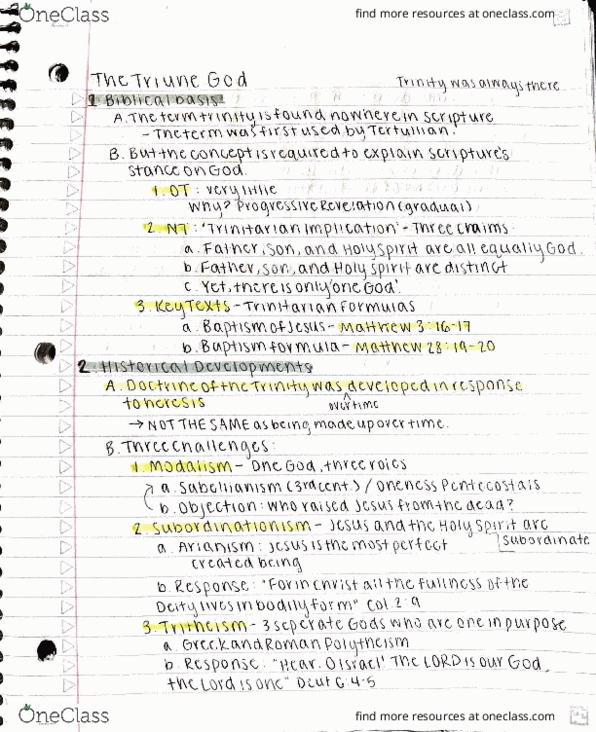 OneClass
find more resources at oneclass.com
The Triune God
Trinity was always there
1. Biblical basis
A. The term trinity is found nowhere in scripture
- The term was first used by Tertullian.
B. But the concept is required to explain scripture's
stance on God.
1. OT: very little
Why? Progressive Revelation (gradual)
2. NT: 'Trinitarian Implication' - Three claims:
a. Father, Son, and Holy Spirit are all equally God.
b. Father, Son, and Holy Spirit are distinct
c. Yet, there is only 'one God'.
3. Key Texts - Trinitarian Formulas
a. Baptism of Jesus - Matthew 3:16-17
b. Baptism formula - Matthew 28:19-20
2. Historical Developments
A. Doctrine of the Trinity was developed in response
to heresis
^ overtime
→ NOT THE SAME as being made up over time.
B. Three challenges:
1. Modalism - One God, three roles
a. Sabellianism (3rd cent.) / oneness Pentecostals
b. Objection: who raised Jesus from the dead?
2. Subordinationism - Jesus and the Holy Spirit are
subordinate
a. Arianism: Jesus is the most perfect
created being
b. Response: "For in Christ all the fullness of the
Deity lives in bodily form" Col. 2:9
3. Tritheism - 3 seperate Gods who are one in purpose
a. Greek and Roman Polytheism
b. Response: "Hear, O Israel! The LORD is our God,
the Lord is one" Deut 6:4-5
OneClass
find more resources at oneclass.com